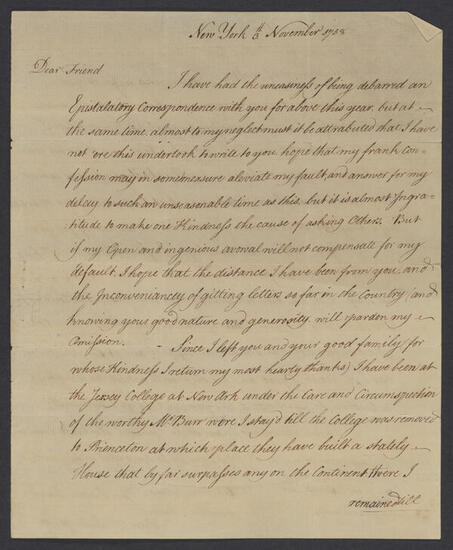 New York th November 1758
Dear Friend
I have had the uneasiness of being debarred an
Epistalatory Correspondence with you for above this year, but at
the same time, almost to my neglect must it be attrabuted that I have
not 'ore this undertook to write to you, hope that my frank Con-
fession may in somemeasure aleviate my fault and answer for my
delay to such an unseasonable time as this, but it is almost Ingra-
titude to make one Kindness the cause of asking Others. But
if my Open and ingenious avowal will not compensate for my
default, I hope that the distance I have been from you, and
the Inconveniancey of gitting letters so far in the Country (and
knowing your good nature and generosity will pardon my
Omission. – Since I left you and your good family (for
whose Kindness I return my most hearty thanks) I have been at
the Jersey College at New Ark under the Care and Circumspection
of the worthy Mr Burr were I stay'd till the College was removed
to Princeton at which place they have built a stately
House that by far surpasses any on the Continent Were I
remained till